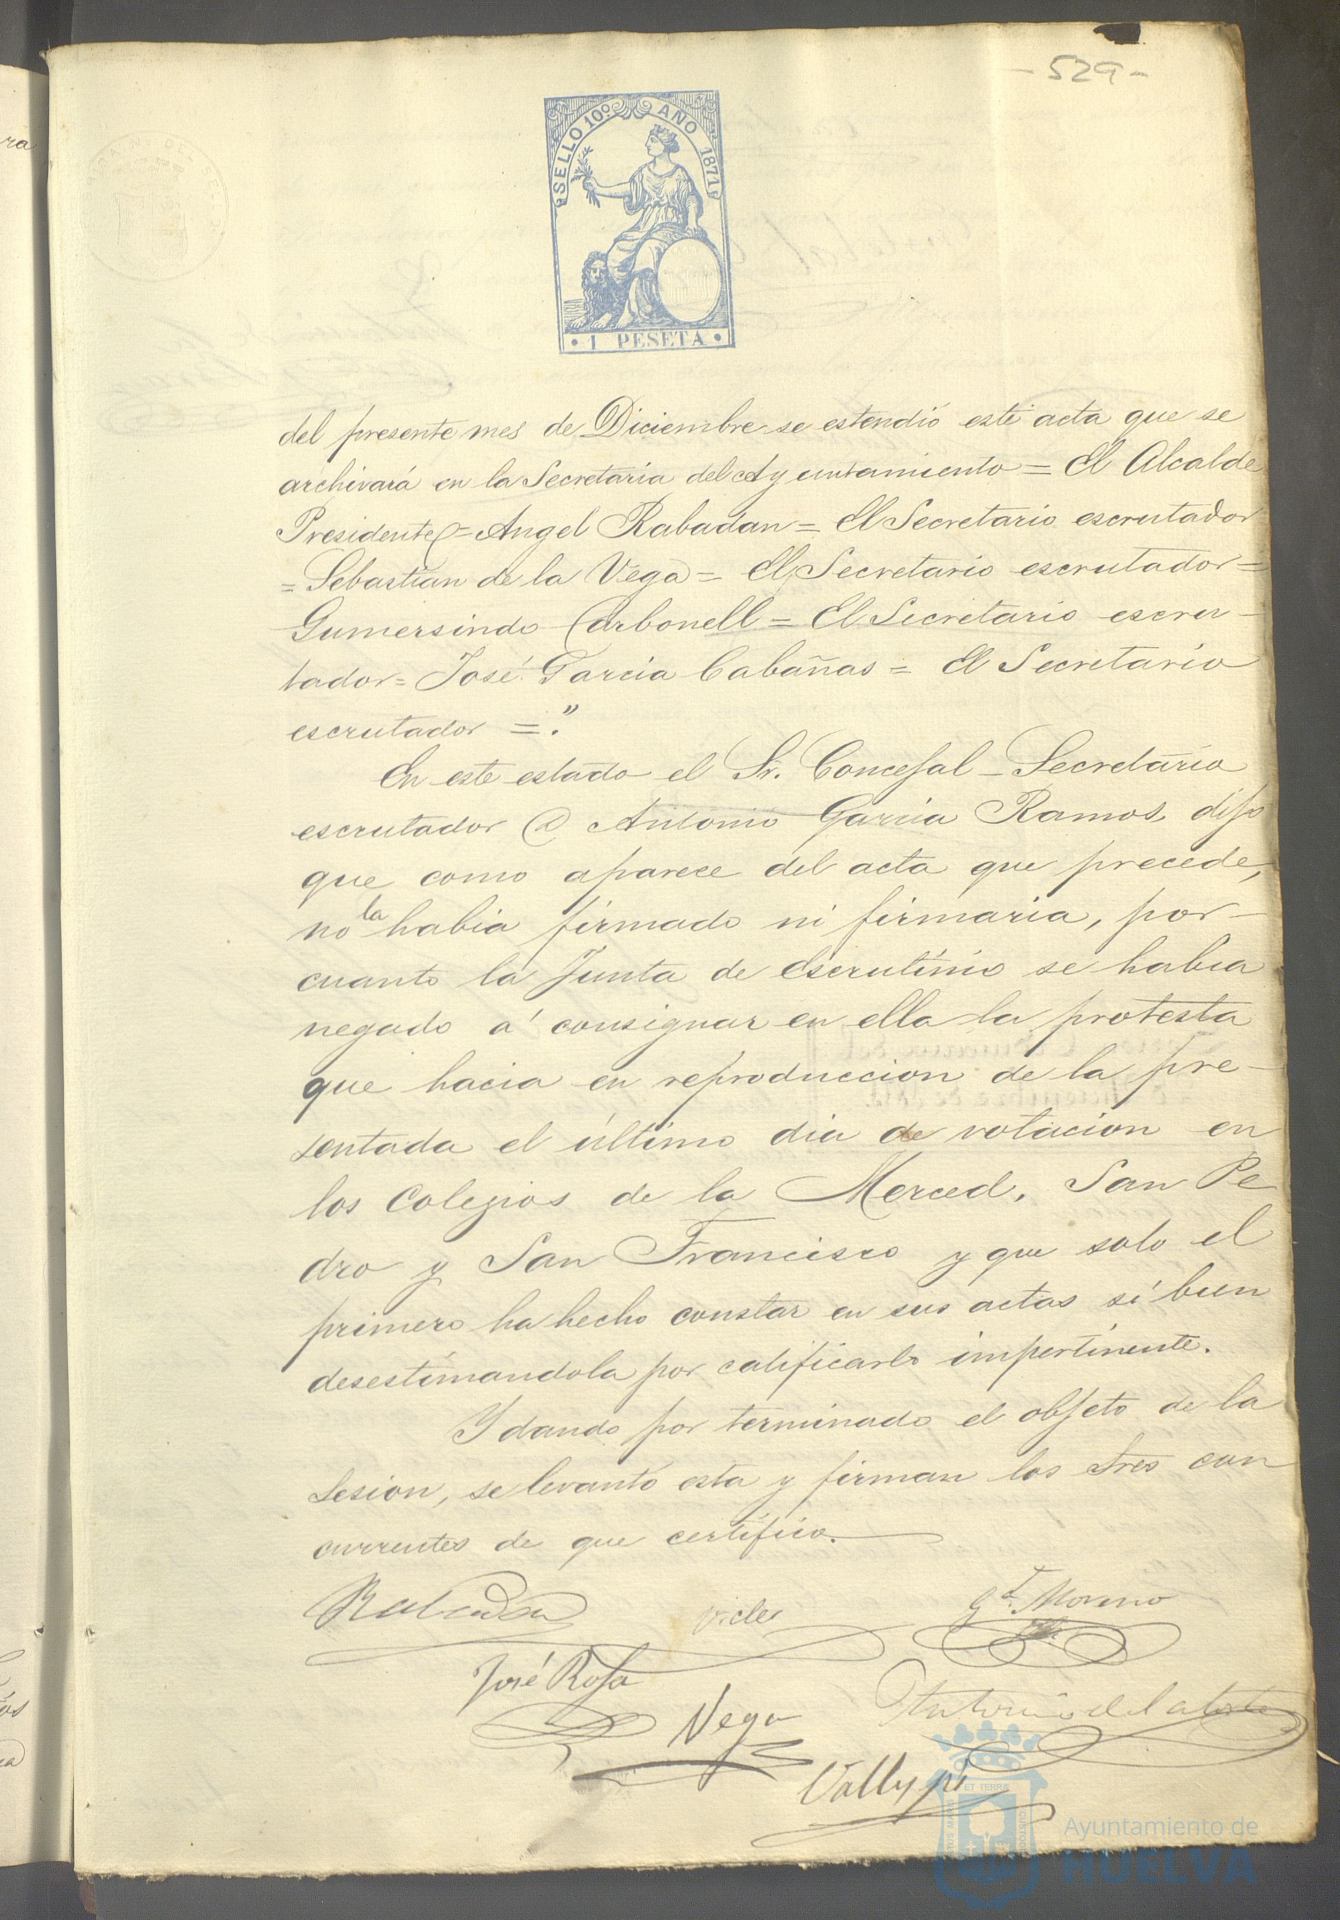 - 529 -
SELLO 10º AÑO 1871
· 1 PESETA ·
del presente mes de Diciembre se estendió este acta que se
archivará en la Secretaria del Ayuntamiento = El Alcalde
Presidente = Angel Rabadan = El Secretario escrutador
= Sebastian de la Vega = El Secretario escrutador =
Gumersindo Carbonell = El Secretario escru-
tador = José Garcia Cabañas = El Secretario
escrutador = ."
En este estado el Sr. Concejal - Secretario
escrutador D Antonio Garcia Ramos dijo
que como aparece del acta que precede,
no la habia firmado ni firmaria, por-
cuanto la Junta de Escrutinio se habia
negado á consignar en ella la protesta
que hacia en reproduccion de la pre-
sentada el último dia de votacion en
los Colegios de la Merced, San Pe
dro y San Francisco y que solo el
primero ha hecho constar en sus actas si bien
desestimandola por calificarlo impertinente.
Y dando por terminado el objeto de la
sesion, se levantó esta y firman los Sres con
currentes de que certifico.
Rabadan
G. Moreno
José Rosa
Vega
Antonio de la Corte
ET TERRA
Ayuntamiento de
HUELVA